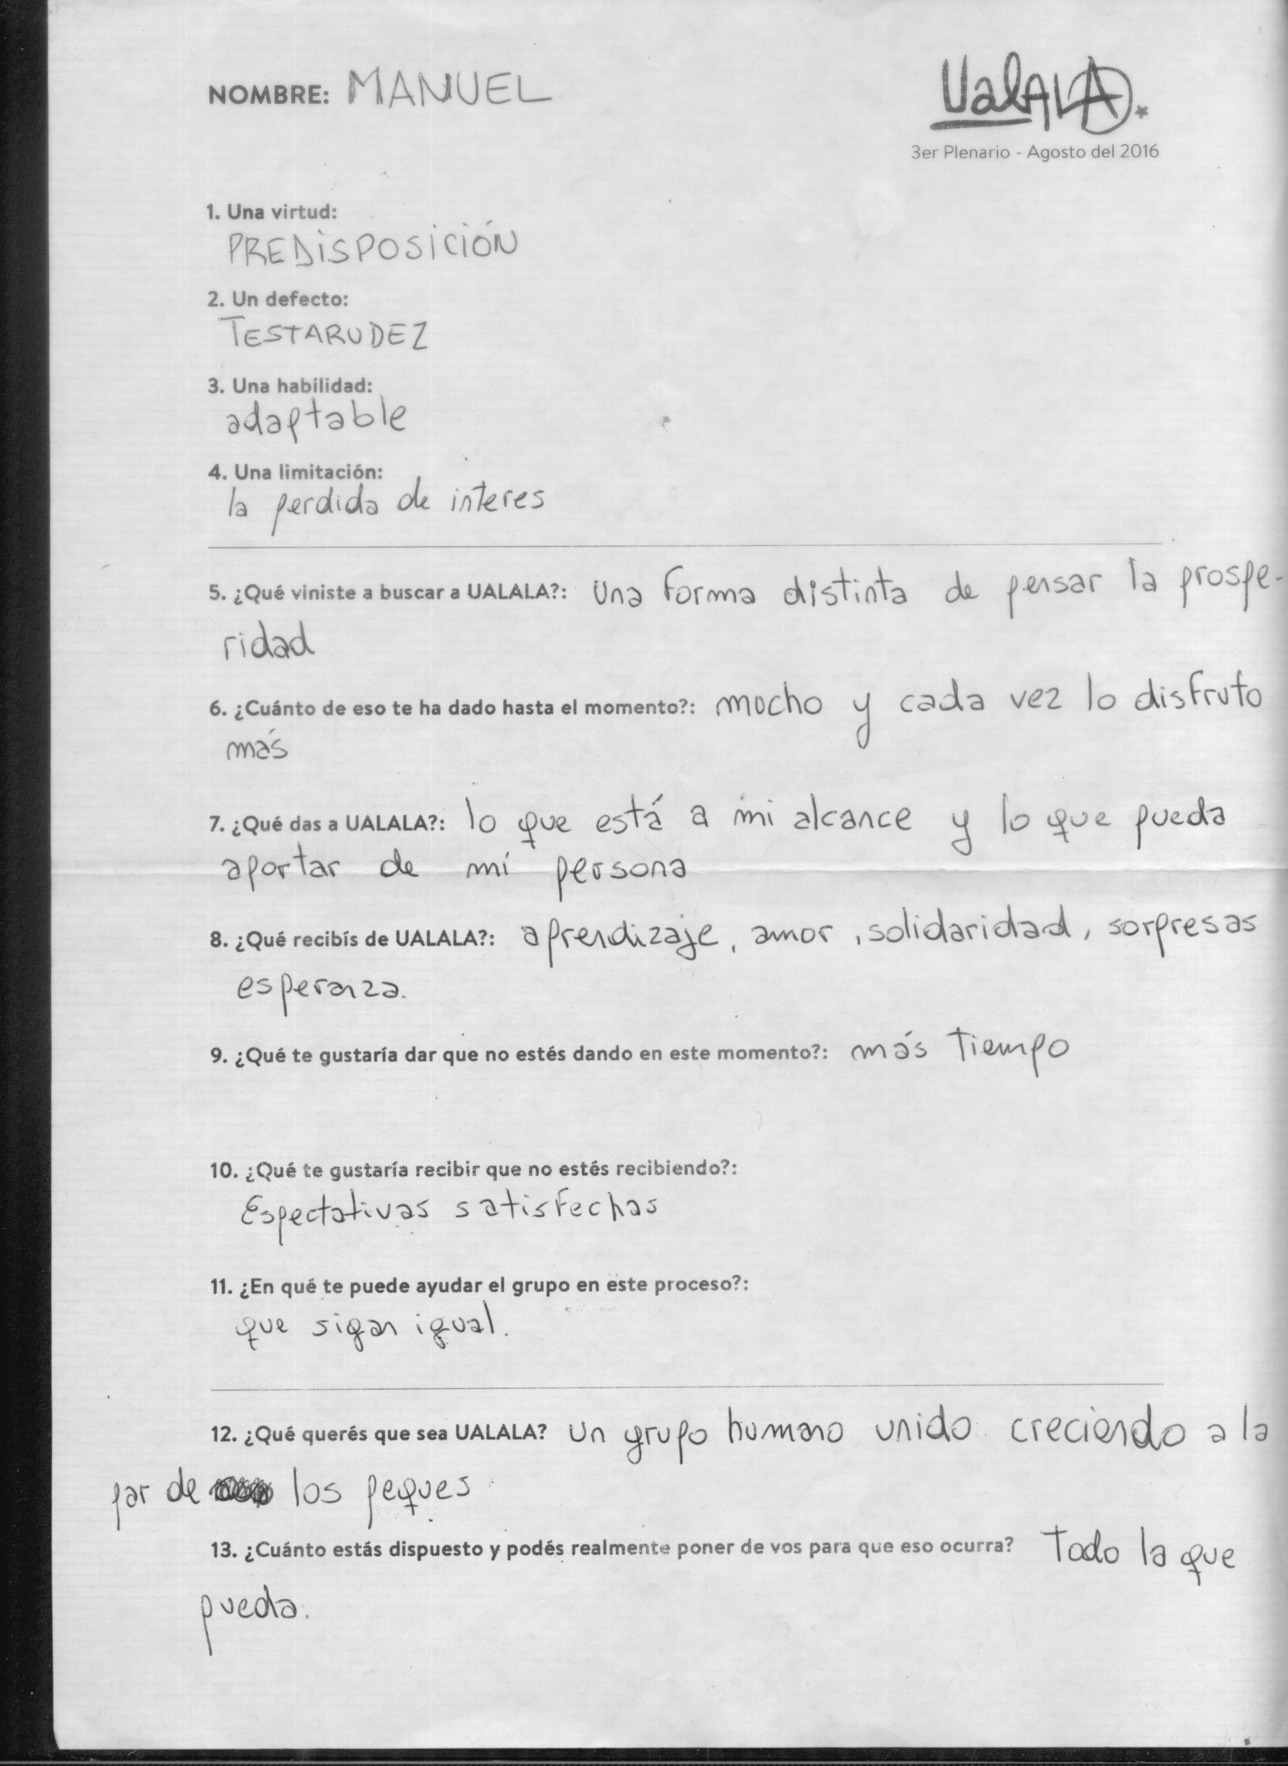 NOMBRE: MANUEL
UalALA.*
3er Plenario - Agosto del 2016
1. Una virtud:
PREDISPOSICIÓN
2. Un defecto:
TESTARUDEZ
3. Una habilidad:
adaptable
4. Una limitación:
la perdida de interes
5. ¿Qué viniste a buscar a UALALA?: Una forma distinta de pensar la prospe-
ridad
6. ¿Cuánto de eso te ha dado hasta el momento?: mucho y cada vez lo disfruto
más
7. ¿Qué das a UALALA?: lo que está a mi alcance y lo que pueda
aportar de mí persona
8. ¿Qué recibís de UALALA?: aprendizaje, amor, solidaridad, sorpresas
esperanza.
9. ¿Qué te gustaría dar que no estés dando en este momento?: más tiempo
10. ¿Qué te gustaría recibir que no estés recibiendo?:
Espectativas satisfechas
11. ¿En qué te puede ayudar el grupo en este proceso?:
que sigan igual.
12. ¿Qué querés que sea UALALA? Un grupo humano unido creciendo a la
par de los peques
13. ¿Cuánto estás dispuesto y podés realmente poner de vos para que eso ocurra? Todo la que
pueda.